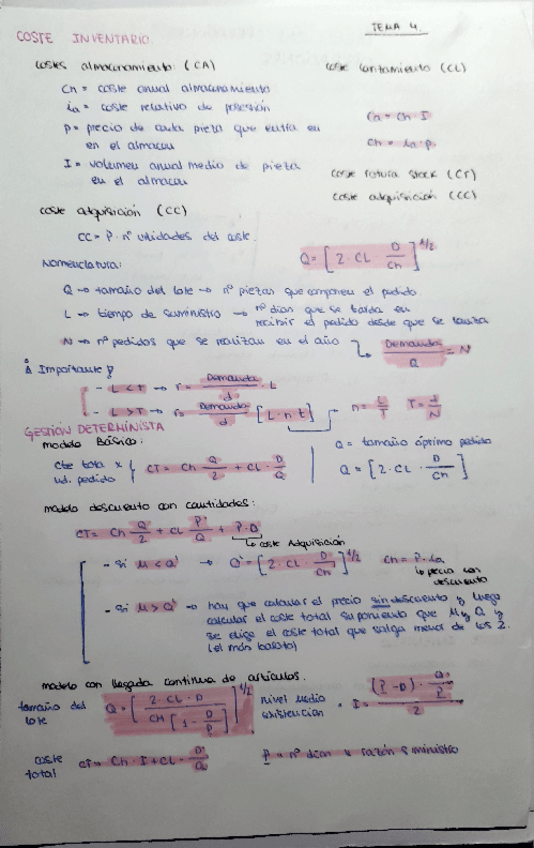 TEMA 4.
COSTE INVENTARIO.
costes almacenamiento: (CA)
coste lanzamiento (CL)
Ch = coste anual almacenamiento
ia = coste relativo de posesión
Ca = Ch · I
P = precio de cada pieza que entra en
en el almacen
Ch = ia · p
I = volumen anual medio de pieza
en el almacen
coste rotura stock (Cr)
coste adquisición (CC)
coste adquisición (CC)
CC = P · nº unidades del coste.
Q = [2 · CL · D/Ch]^1/2
Nomenclatura:
Q → tamaño del lote → nº piezas que componen el pedido.
L → tiempo de suministro → nº dias que se tarda en
recibir el pedido desde que se lanza
N → nº pedidos que se realizan en el año → Demanda/Q = N
¡ Importante !
- L < T → r = Demanda/d · L
- L > T → r = Demanda/d [L - n t] → n = L/T T = d/N
GESTION DETERMINISTA
modelo Básico:
Q = tamaño óptimo pedido
Cte total x
ud. pedido
CT = Ch Q/2 + CL · D/Q
Q = [2 · CL · D/Ch]
modelo descuento con cantidades:
CT = Ch Q/2 + CL P/Q + P · D
→ coste Adquisición
- Si M < Q' → Q' = [2 · CL · D/Ch]^1/2 Ch = P · ia
→ precio con
descuento
- Si M > Q' → hay que calcular el precio sin descuento y luego
calcular el coste total suponiendo que M y Q y
se elige el coste total que salga menor de los 2.
(el más barato)
modelo con llegada continua de artículos.
tamaño del
lote
Q = [2 · CL · D / CH [1 - D/P]]^1/2
nivel medio
existencion
· I = (P - D) · Q/P / 2
coste
total
CT = Ch · I + CL · D/Q
P = nº dias x razón suministro